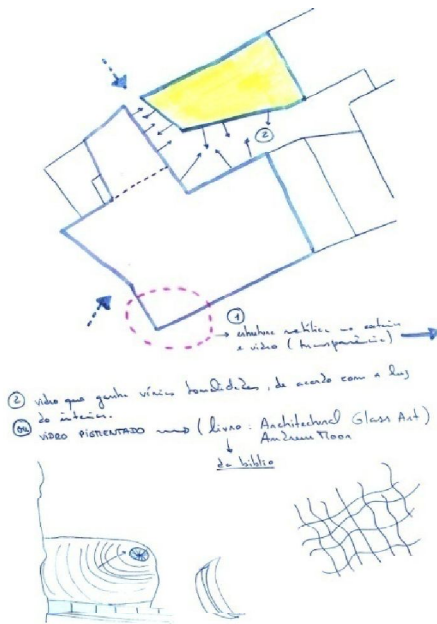 ②
①
→ estrutura metálica no exterior
e vidro (transparência)
② vidro que ganha várias tonalidades, de acordo com a luz
do interior.
ou VIDRO PIGMENTADO → (livro: Architectural Glass Art)
Andrew Moor
da biblio